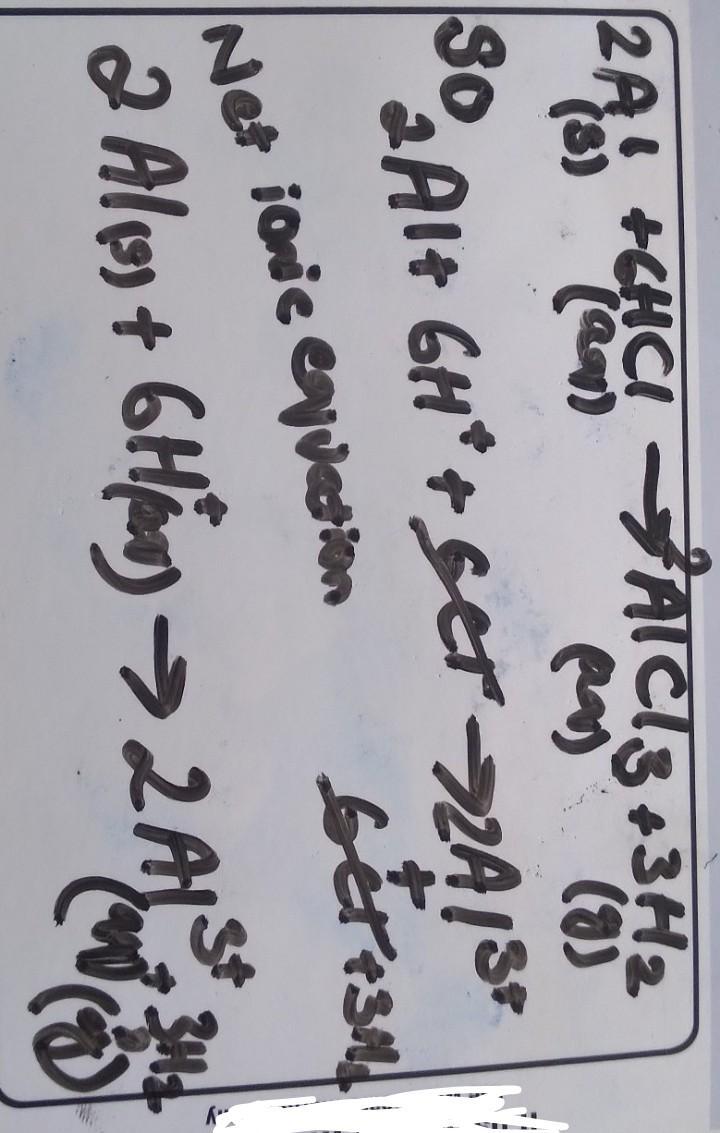 2Al + 6HCl → 2AlCl3 + 3H2
(s) (aq) (aq) (g)
SO
2Al + 6H+ + 6Cl- → 2Al3+
+ 6Cl- + 3H2
Net ionic equation
2Al(s) + 6H+(aq) → 2Al3+(aq) + 3H2(g)